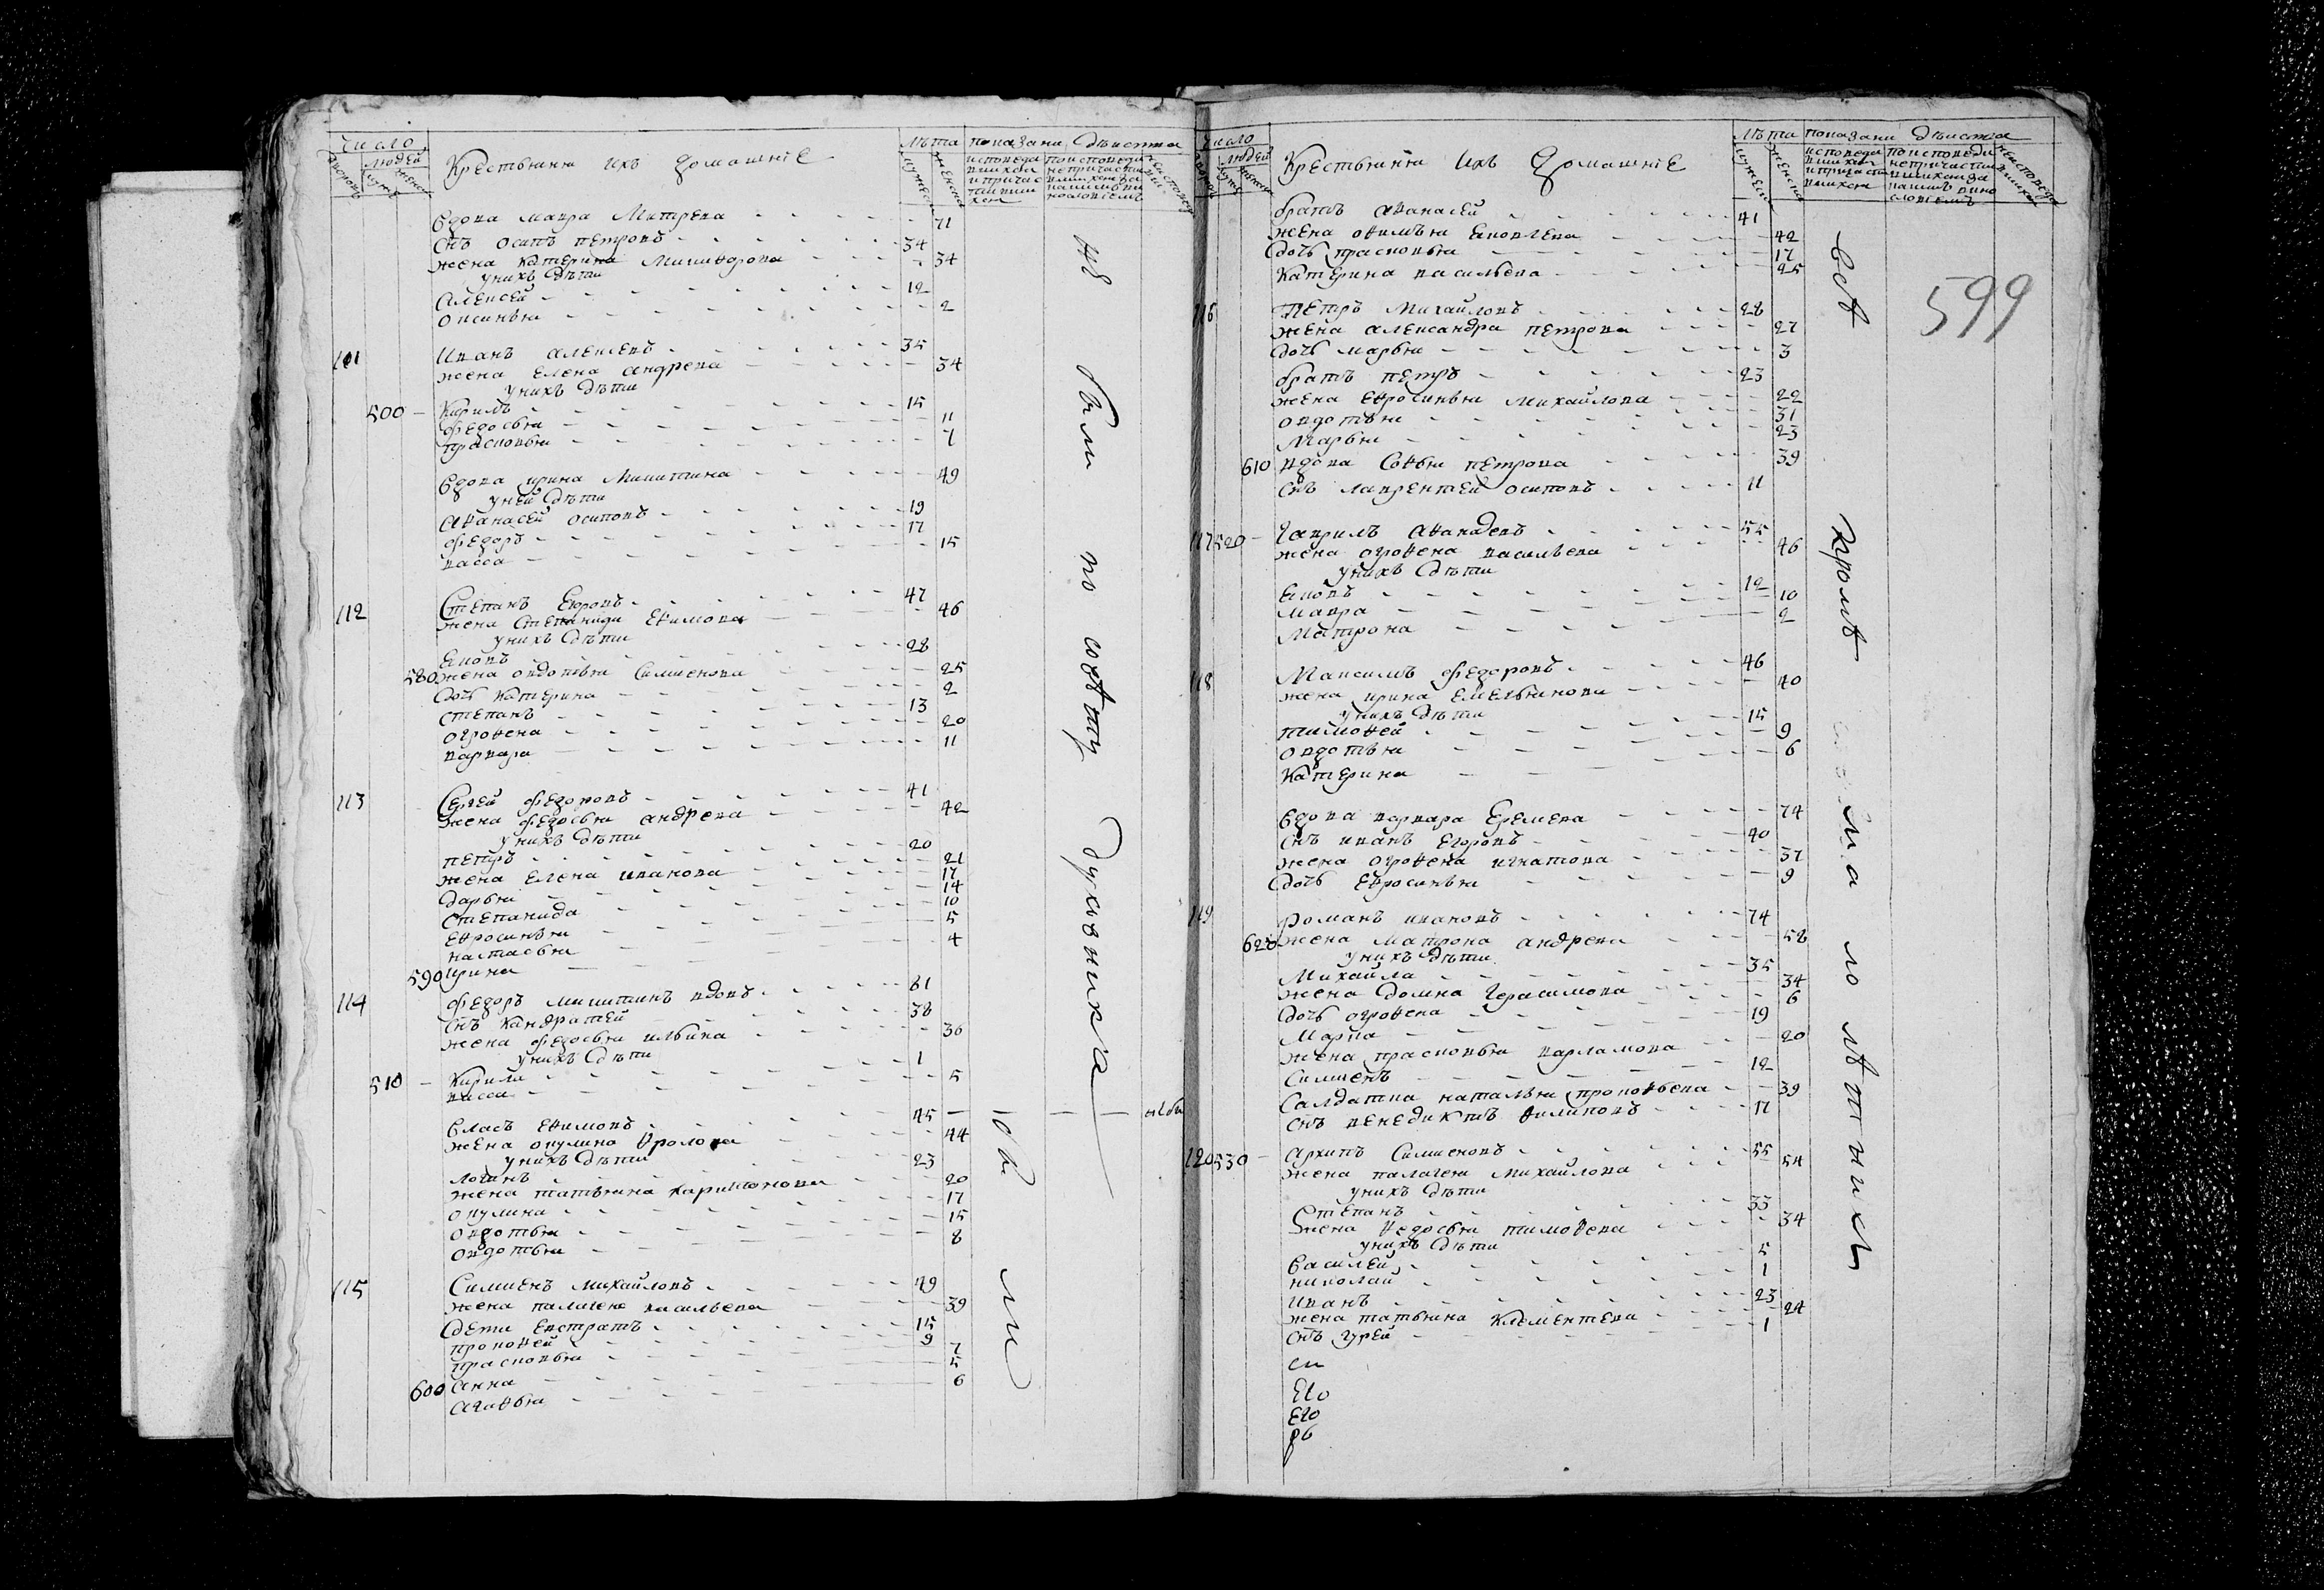 число
людей
Крестьяня ихъ домашнiе
лѣта
показани дѣиства
вдова мавра Митрева 71
снъ осипъ петровъ 34
жена катерина Миннфорова 34
у нихъ дѣти
Алексей 12
оксинья 2
111 Иванъ алексевъ 35
жена елена андрева 34
у нихъ дѣти
500 Кирилъ 15
федосья 11
прасковья 7
вдова ирина Микитина 49
у ней дѣти
Аѳанасей осиповъ 19
федоръ 17
васса 15
112 Степанъ Егоровъ 47
жена степанида Еѳимова 46
у нихъ дѣти
Ековъ 28
580 жена овдотья Симионова 25
дочь катерина 2
степанъ 13
огроѳена 20
варвара 11
113 Сергей федоровъ 41
жена федосья андрева 42
у нихъ дѣти
петръ 20
жена елена иванова 21
дарья 17
степанида 14
еѳросинья 10
настасья 5
590 ирина 4
114 федоръ микитинъ вдовъ 61
снъ кандратей 38
жена федосья ильина 36
у нихъ дѣти
510 Кирила 1
васса 5
Власъ еѳимовъ 45
жена окулина ѳролова 44
у нихъ дѣти
логинъ 23
жена татьяна харитонова 20
окулина 17
овдотья 15
овдотья 8
115 Симионъ михайловъ 49
жена палагея васильева 39
дети евстратъ 15
прокоѳей 9
прасковья 7
600 анна 5
агаѳья 6
не были по совѣту духовника
число
людей
Крестьяня ихъ домашнiе
лѣта
показани дѣиства
599
братъ аѳанасей 41
жена оѳимья Ековлева 42
дочь прасковья 17
катерина васильева 25
116 Петръ Михайловъ 28
жена александра петрова 27
дочь марья 3
братъ петръ 23
жена еѳросинья михайлова 22
овдотья 31
Марья 23
610 вдова Соѳья петрова 39
снъ лаврентей осиповъ 11
117 520 Гаврилъ аѳанасевъ 55
жена огроѳена васильева 46
у нихъ дѣти
Ековъ 12
мавра 10
матрона 2
118 Максимъ федоровъ 46
жена ирина емельянова 40
у нихъ дѣти
тимоѳей 15
овдотья 9
катерина 6
вдова варвара Еремева 74
снъ иванъ Егоровъ 40
жена огроѳена игнатова 37
дочь еѳросинья 9
119 романъ ивановъ 74
620 жена матрона андрева 58
у нихъ дѣти
Михайла 35
жена домна Герасимова 34
дочь огроѳена 6
Марка 19
жена прасковья варламова 20
Симионъ 12
Салдатка наталья прокоѳьева 39
снъ венедиктъ ѳилиповъ 17
120 530 Архипъ Симионовъ 55
жена палагея михайлова 54
у нихъ дѣти
Степанъ 33
жена ѳедосья тимоѳева 34
у нихъ дѣти
василей 5
николай 1
иванъ 23
жена татьяна клементева 24
снъ гурей 1
си
Его
Его
рб
всѣ кромѣ малолѣтнихъ